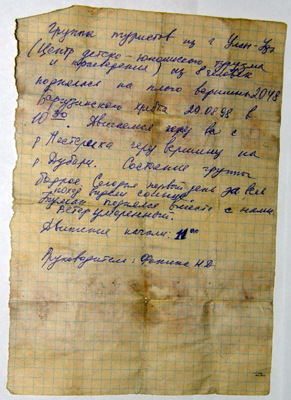 Группа туристов из г Улан-Удэ
(Центр детско-юношеского туризма
и краеведения) из 8 человек
поднялась на плато вершины 2048
Баргузинского хребта 20.08.98 в
10 30 Двигаемся
р Нестериха через вершину на
р Состояние группы
бодрое Сегодня первый день за все
поднялся вместе с нами.
Ветер умеренный.
Движение начали: 11 00
Руководитель: